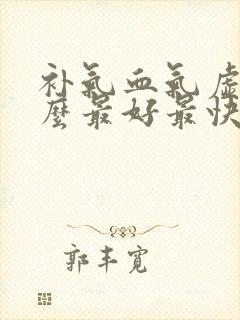 补氣血氣虚
麼最好最快
郭丰寬